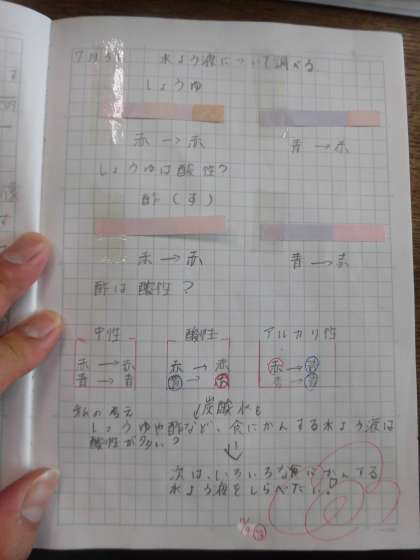 7月5日 水よう液について調べる
しょうゆ
赤→赤 青→赤
しょうゆは酸性?
酢(す)
赤→赤 青→赤
酢は酸性?
中性 酸性 アルカリ性
赤→赤 赤→赤 赤→青
青→青 青→赤 青→青
私の考え ↓炭酸水も
しょうゆや酢など、食にかんする水よう液は
酸性が多い?
↓
次は、いろいろな食にかんする
水よう液をしらべたい。